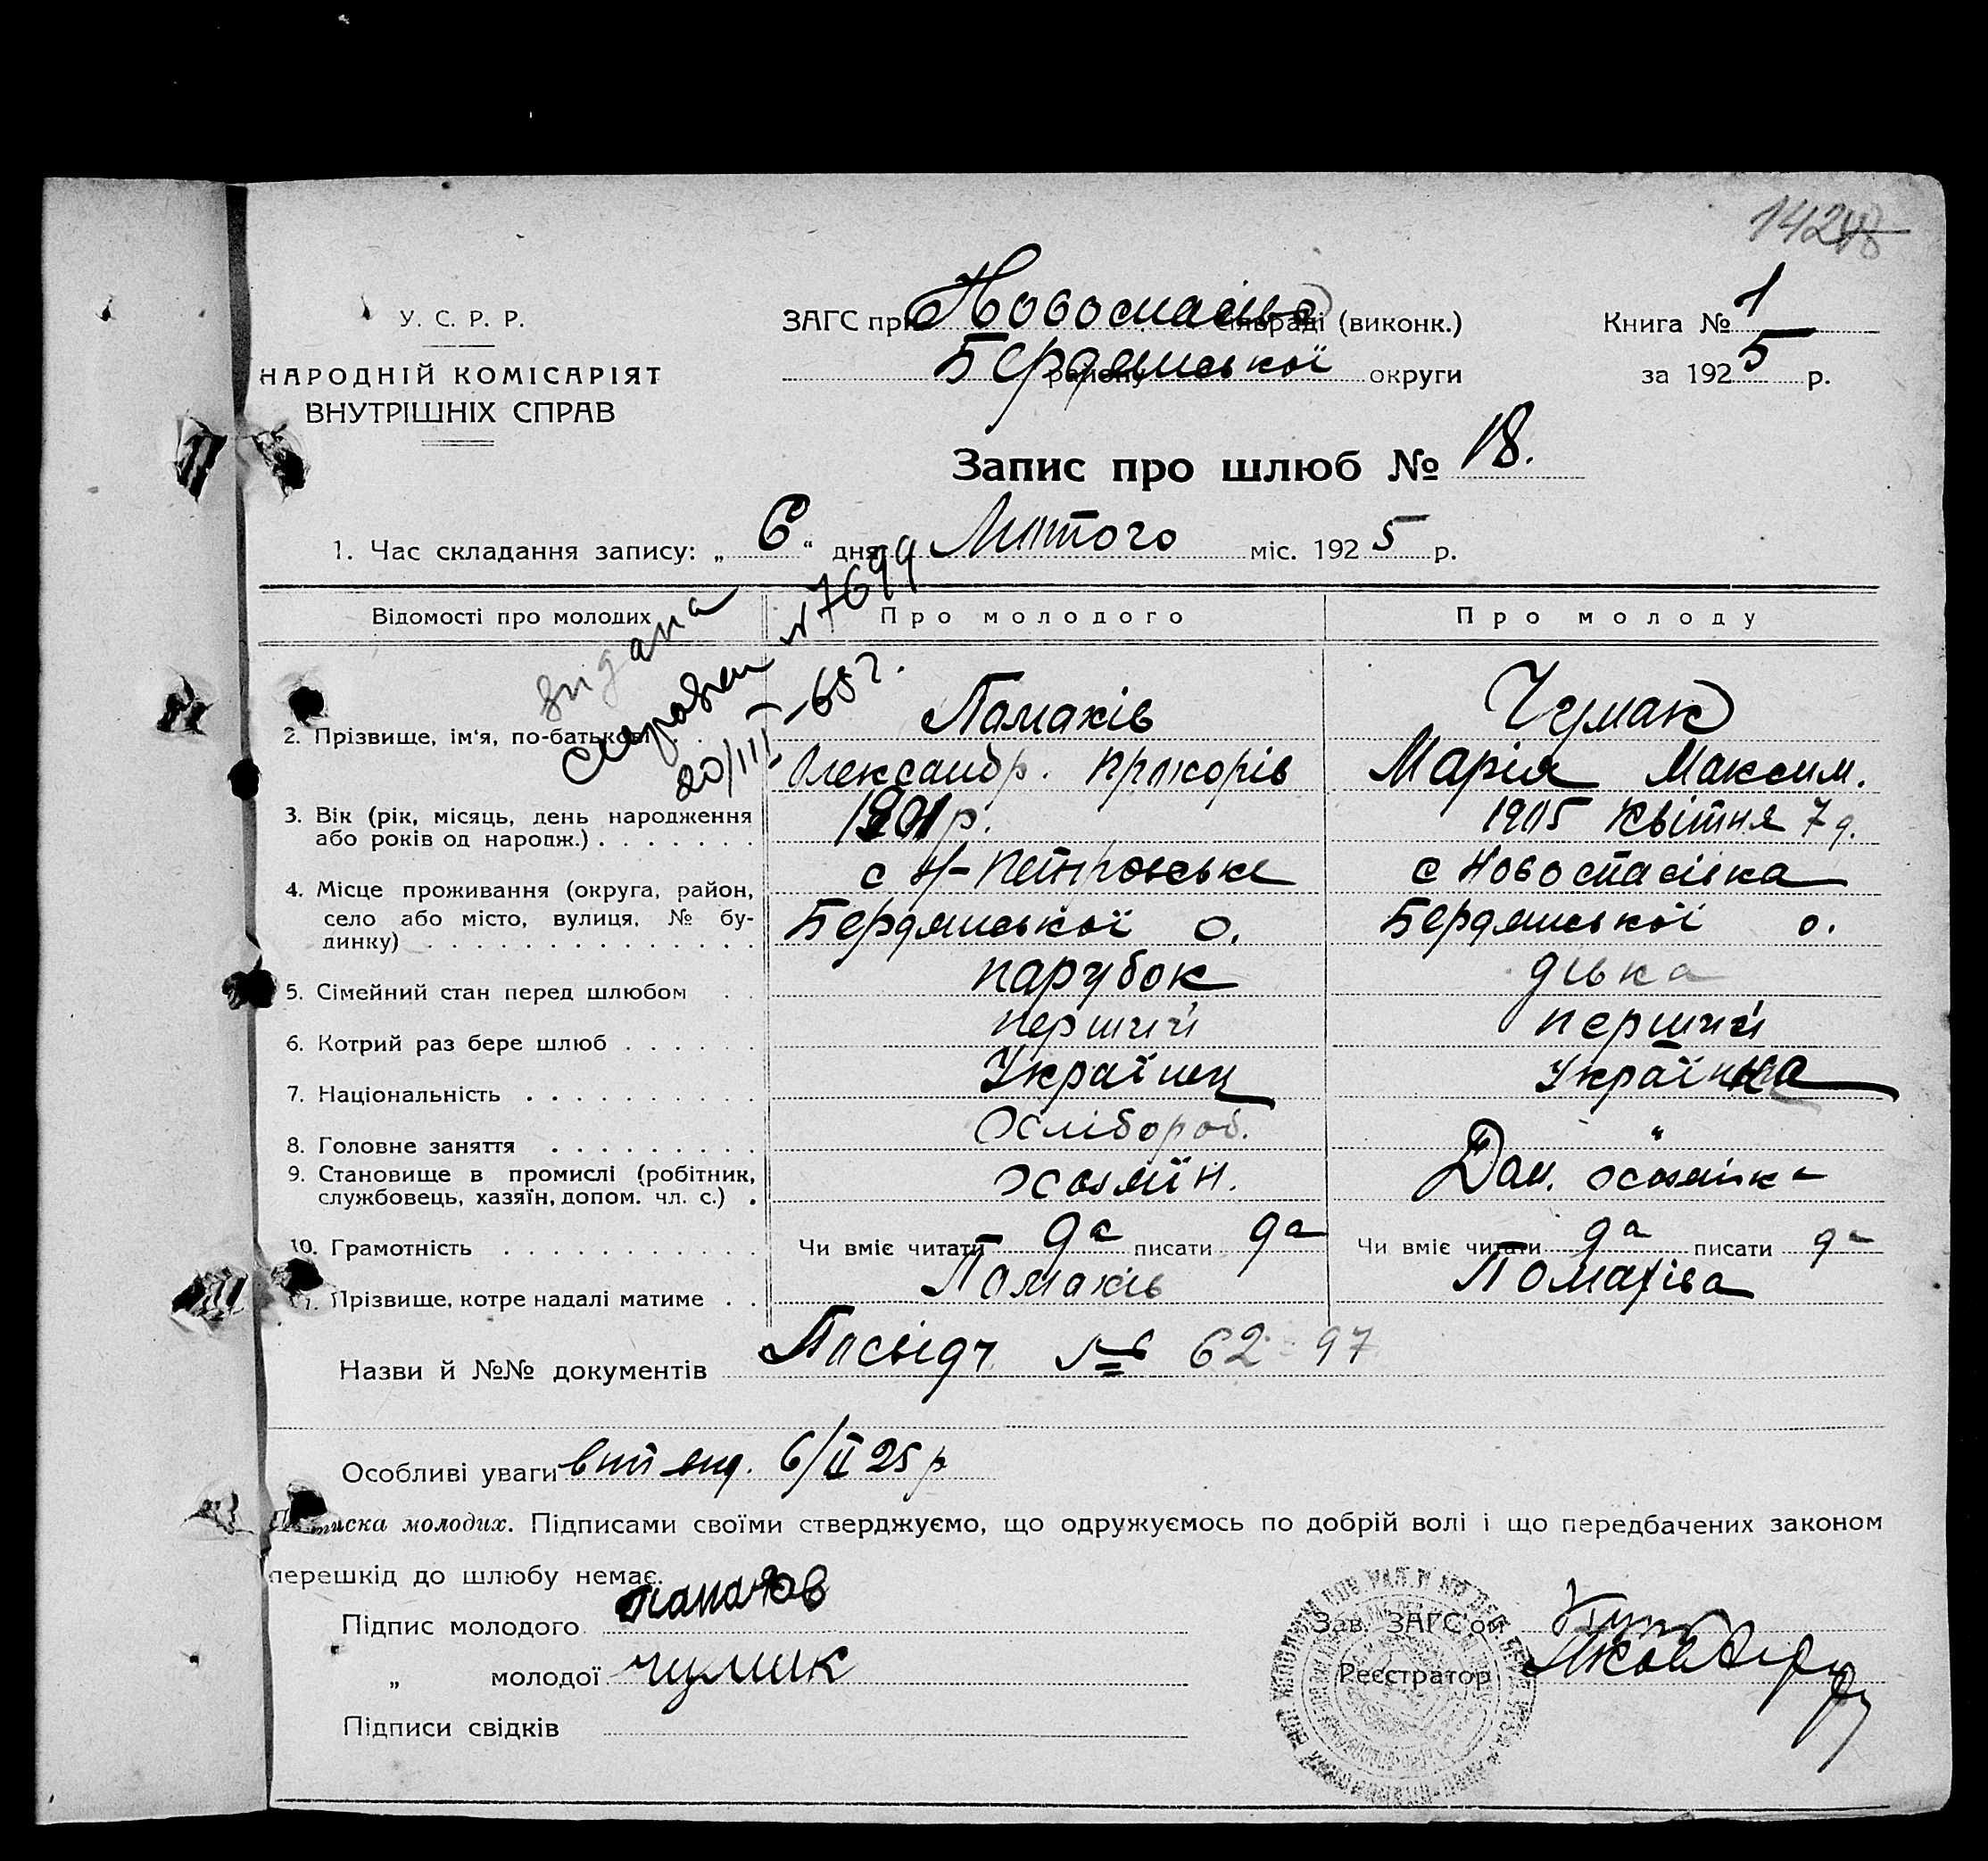 У. С. Р. Р.
НАРОДНІЙ КОМІСАРІЯТ
ВНУТРІШНІХ СПРАВ
ЗАГС при Новоспасівс сільраді (виконк.)
району Бердянської округи
Книга № 1
за 1925 р.
Запис про шлюб № 18.
1. Час складання запису: „6“ дня Лютого міс. 1925 р.
видана
справка № 7699
20/III-65 г.
Відомості про молодих
Про молодого
Про молоду
2. Прізвище, ім'я, по-батькові
Помахів
Олександр. Прохорів
Чумак
Марія Максим.
3. Вік (рік, місяць, день народження
або років од народж.)
1901 р.
1905 Квітня 7 д.
4. Місце проживання (округа, район,
село або місто, вулиця, № бу-
динку)
с Н-Петровське
Бердянської о.
с Новоспасівка
Бердянської о.
5. Сімейний стан перед шлюбом
парубок
дівка
6. Котрий раз бере шлюб
перший
перший
7. Національність
Українец
Українка
8. Головне заняття
Хлібороб.
"
9. Становище в промислі (робітник,
службовець, хазяїн, допом. чл. с.)
хозяїн.
Дом. хозяйка
10. Грамотність
Чи вміє читати да писати да
Чи вміє читати да писати да
11. Прізвище, котре надалі матиме
Помахів
Помахіва
Назви й №№ документів Посвідч № 62-97
Особливі уваги вит вид. 6/II 25 р
Підписка молодих. Підписами своїми стверджуємо, що одружуємось по добрій волі і що передбачених законом
перешкід до шлюбу немає.
Підпис молодого
„ молодої чумак
Підписи свідків
Зав. ЗАГС'ом
Реєстратор